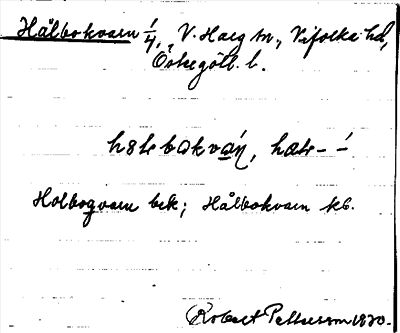 Hålbokvarn 1/4, V. Harg sn., Vifolka hd,
Östergötl. l.
Holbogvarn bek; Hålbokvarn kb.
Robert Pettersson 1930.